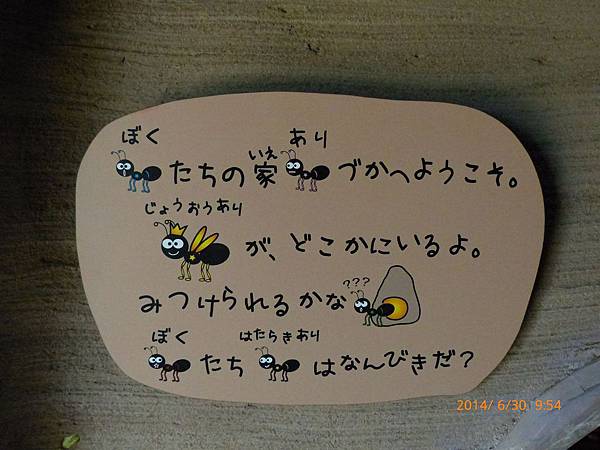 ぼく あり
たちの家 いえ づかへようこそ。
じょうおうあり
が、どこかにいるよ。
???
みつけられるかな
ぼく はたらきあり
たち はなんびきだ?
2014/ 6/30 9:54